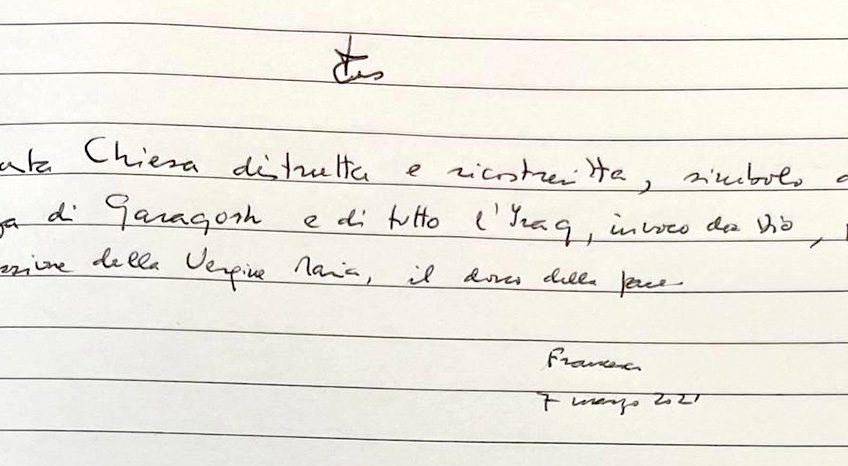 Chiesa distrutta e ricostruita, simbolo
di Qaraqosh e di tutto l'Iraq, invoco da Dio,
della Vergine Maria, il dono della pace
Francesco
7 marzo 2021